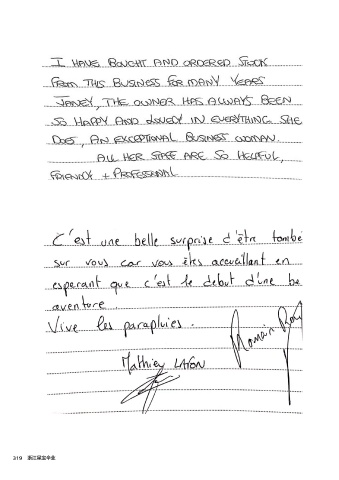 I HAVE BOUGHT AND ORDERED STOCK
FROM THIS BUSINESS FOR MANY YEARS
JANEY, THE OWNER HAS ALWAYS BEEN
SO HAPPY AND LOVELY IN EVERYTHING SHE
DOES, AN EXCEPTIONAL BUSINESS WOMAN.
ALL HER STAFF ARE SO HELPFUL,
FRIENDLY + PROFESSIONAL
C'est une belle surprise d'être tombé
sur vous car vous êtes accueillant en
esperant que c'est le debut d'une be
aventure.
Vive les parapluies.
Romain
Mathieu LAFON
319 浙江星宝伞业